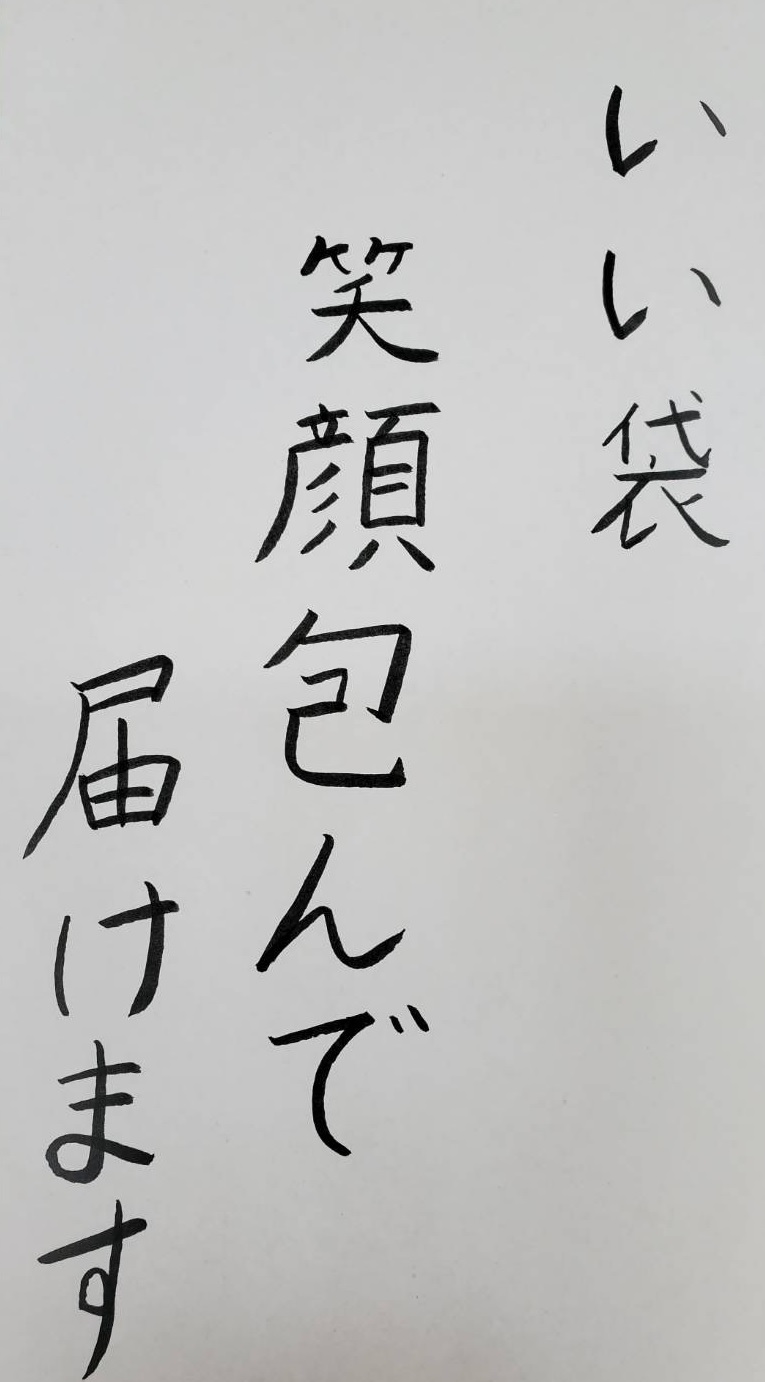 いい袋
笑顔包んで
届けます